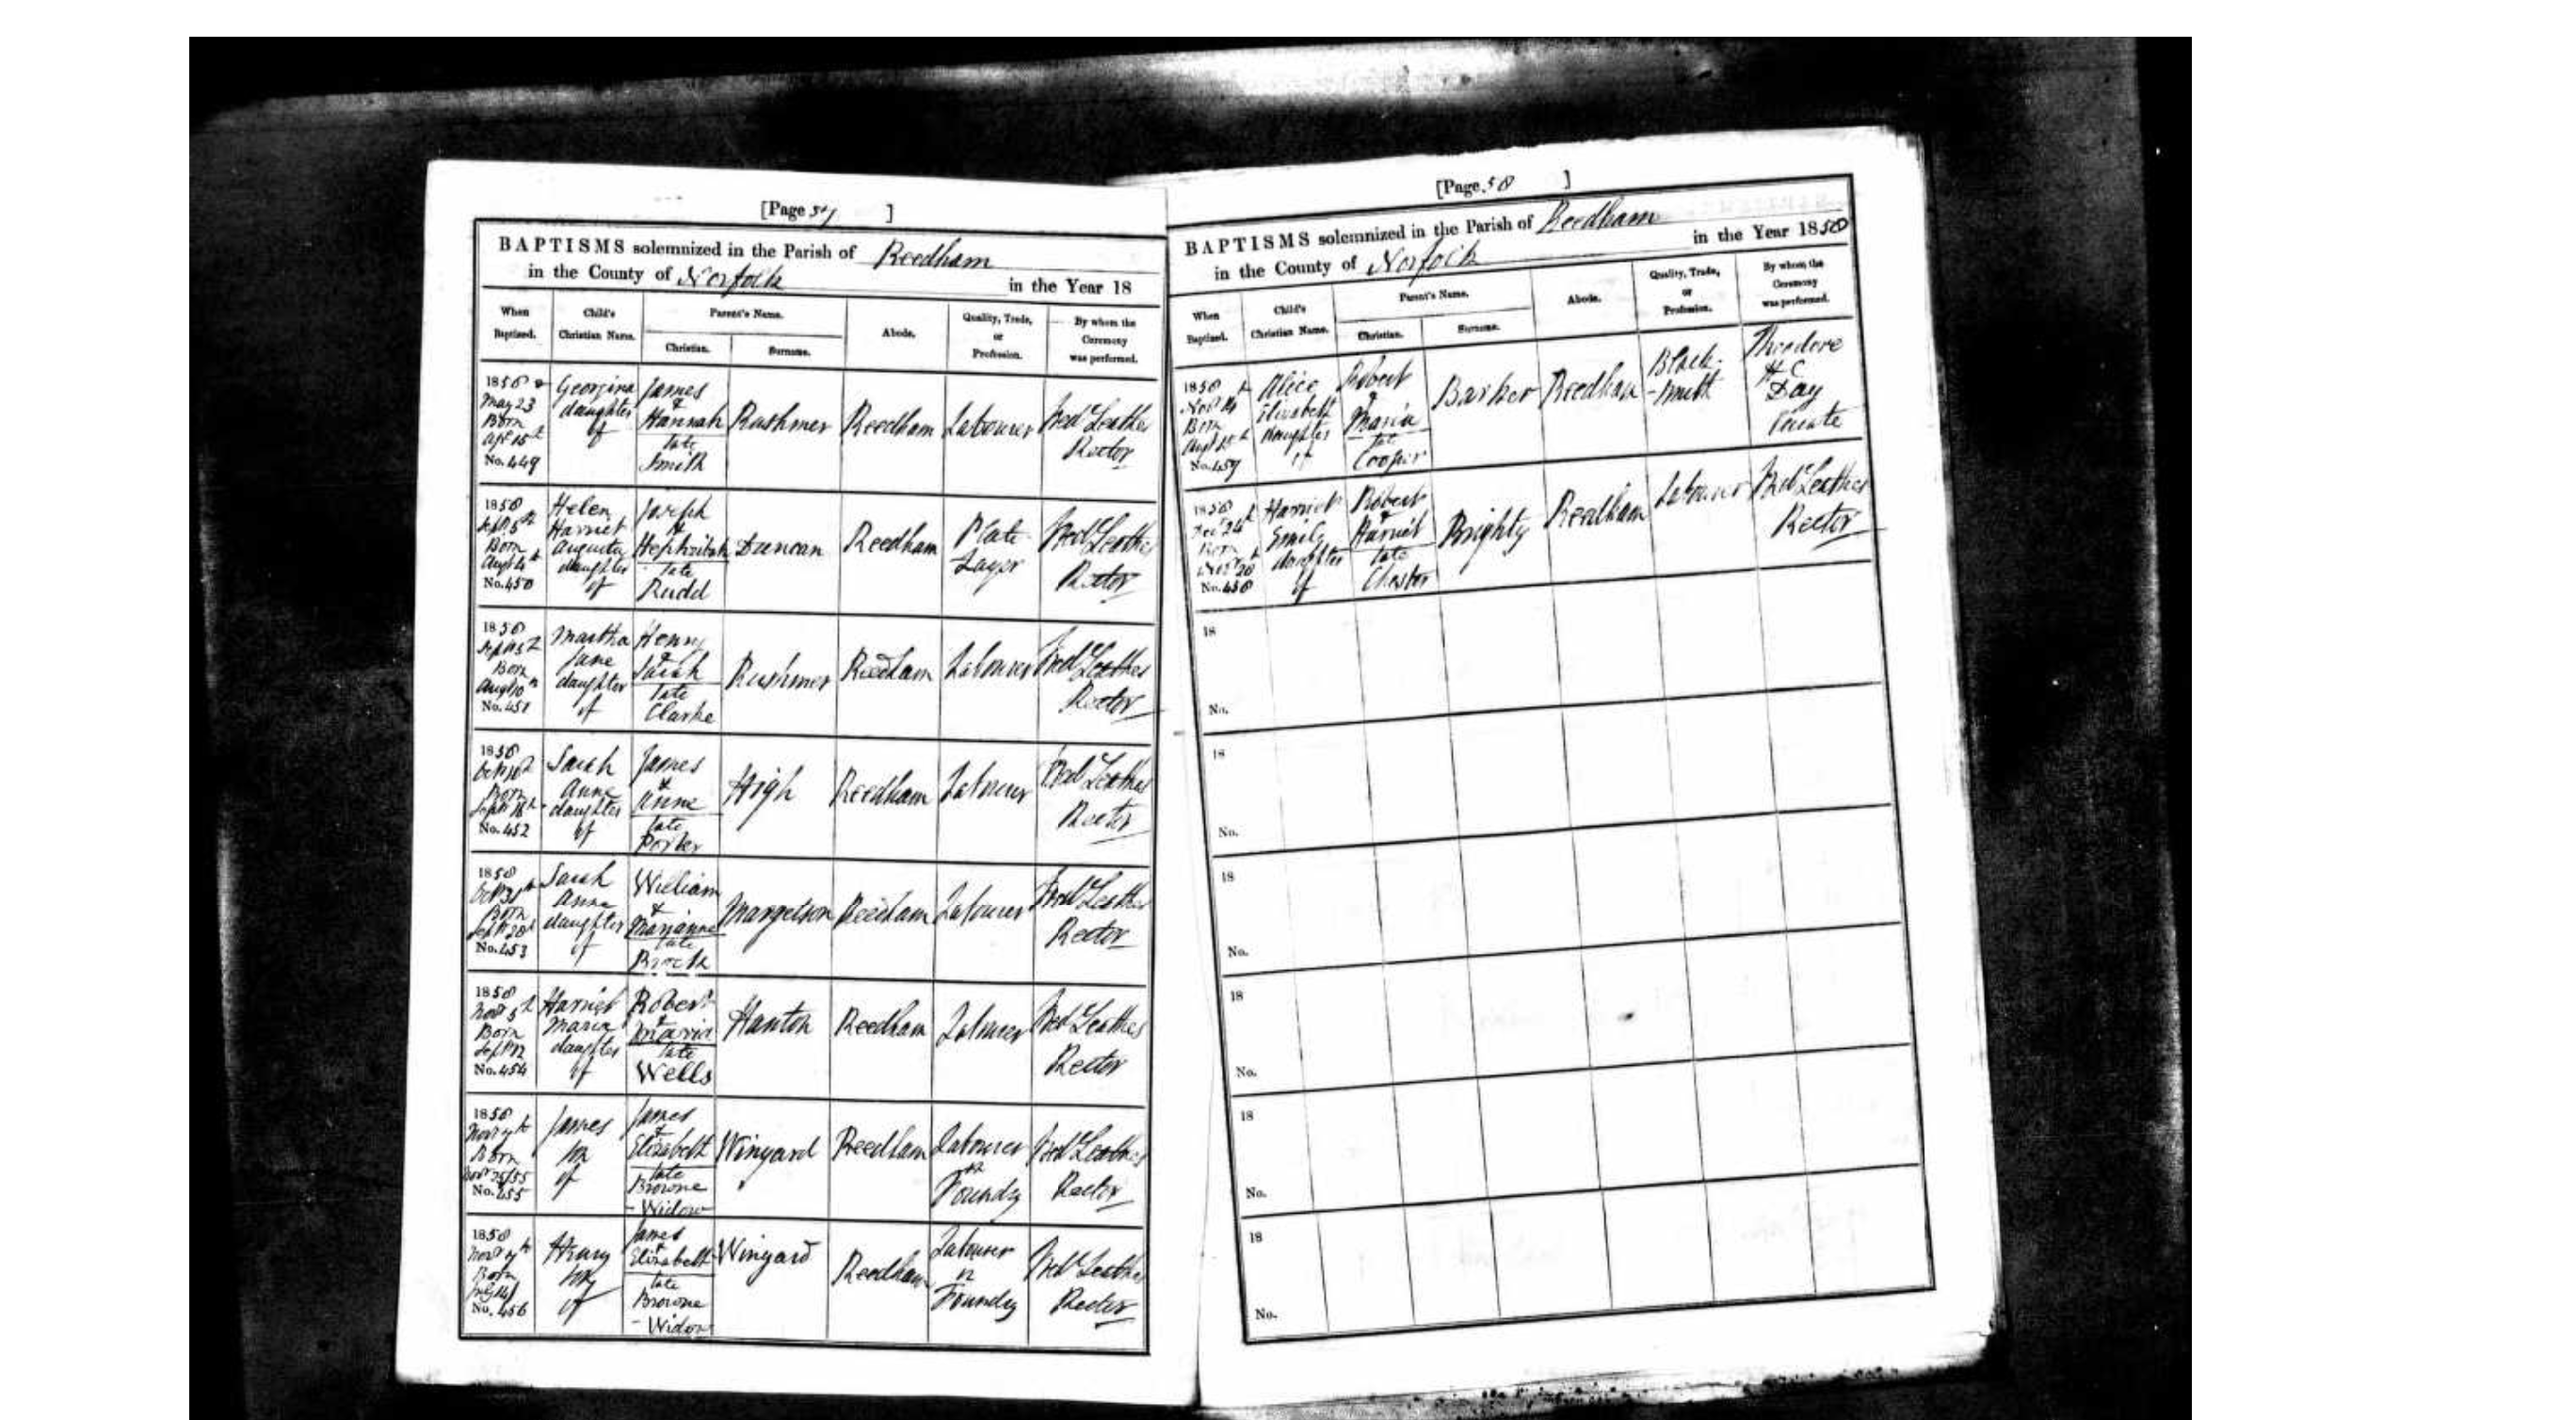 [Page 57 ]
BAPTISMS solemnized in the Parish of Reedham
in the County of Norfolk in the Year 18
When Baptized.
Child's Christian Name.
Parent's Name.
Christian.
Surname.
Abode.
Quality, Trade, or Profession.
By whom the Ceremony was performed.
1858
May 23
Born
Apl 15th
No. 449
Georgina
daughter
of
James
&
Hannah
late
Smith
Rushmer
Reedham
Labourer
Fred Leathes
Rector
1858
Sept 5th
Born
Aug 4th
No. 450
Helen
Harriet
Augusta
daughter
of
Joseph
&
Hephzibah
late
Rudd
Duncan
Reedham
Plate
Layer
Fred Leathes
Rector
1858
Born
Aug 10th
No. 451
Martha
Jane
daughter
of
Henry
&
Sarah
late
Clarke
Rushmer
Reedham
Labourer
Fred Leathes
Rector
1858
Born
Sept 18th
No. 452
Sarah
Anne
daughter
of
James
&
Anne
late
Porter
High
Reedham
Labourer
Fred Leathes
Rector
1858
Oct 31st
Born
Sept 20th
No. 453
Sarah
Anne
daughter
of
William
&
Marianne
late
Brock
Margetson
Reedham
Labourer
Fred Leathes
Rector
1858
Novr 5th
Born
Sept 12
No. 454
Harriet
Maria
daughter
of
Robert
&
Maria
late
Wells
Hanton
Reedham
Labourer
Fred Leathes
Rector
1858
Novr 7th
Born
Novr 25/55
No. 455
James
son
of
James
&
Elizabeth
late
Browne
- Widow
Winyard
Reedham
Labourer
in
Foundry
Fred Leathes
Rector
1858
Novr 7th
Born
No. 456
Henry
son
of
James
&
Elizabeth
late
Browne
- Widow
Winyard
Reedham
Labourer
in
Foundry
Fred Leathes
Rector
[Page 58 ]
BAPTISMS solemnized in the Parish of Reedham
in the County of Norfolk in the Year 1858
When Baptized.
Child's Christian Name.
Parent's Name.
Christian.
Surname.
Abode.
Quality, Trade, or Profession.
By whom the Ceremony was performed.
1858
Novr 14
Born
No. 457
Alice
Elizabeth
daughter
of
Robert
&
Maria
late
Cooper
Barker
Reedham
Black-
-smith
Theodore
H C
Day
Curate
1858
Decr 24th
Born
Novr 20
No. 458
Harriet
Emily
daughter
of
Robert
&
Harriet
late
Chester
Brighty
Reedham
Labourer
Fred Leathes
Rector
18
No.
18
No.
18
No.
18
No.
18
No.
18
No.